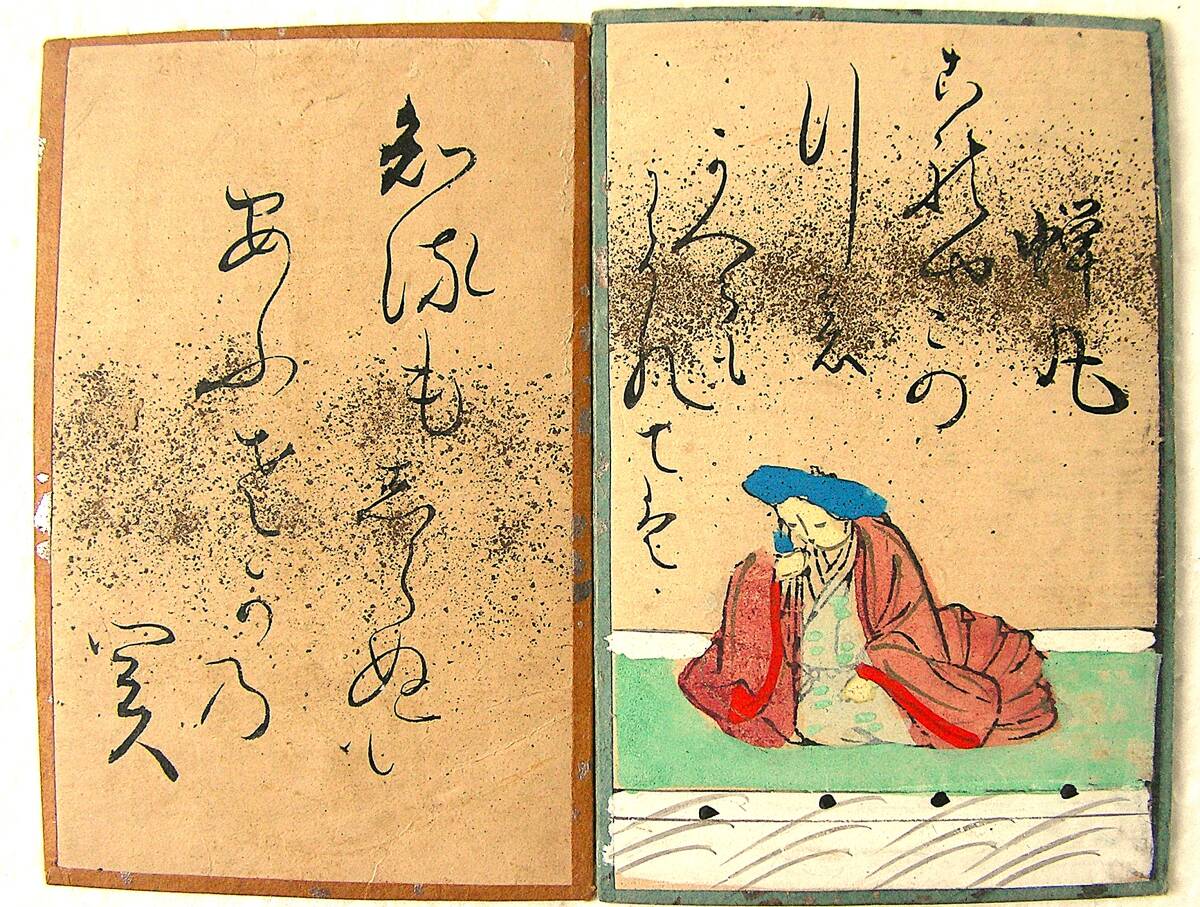 蝉丸
これやこの
行も
かへるも
わかれては
知るもしらぬも
あふさかの
関